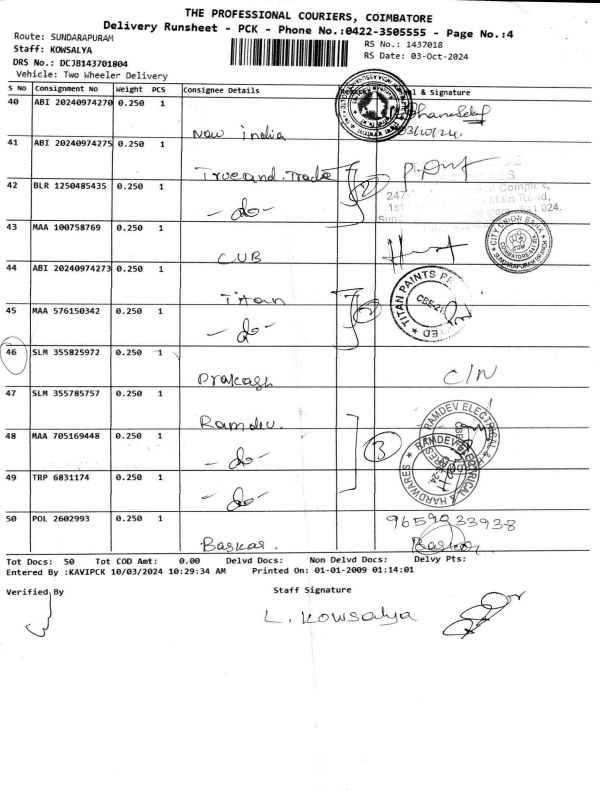 THE PROFESSIONAL COURIERS, COIMBATORE
Delivery Runsheet - PCK - Phone No.:0422-3505555 - Page No.:4
Route: SUNDARAPURAM
RS No.: 1437018
Staff: KOWSALYA
RS Date: 03-Oct-2024
DRS No.: DCJB143701804
Vehicle: Two Wheeler Delivery
S No Consignment No Weight PCS Consignee Details & Signature
40 ABI 20240974270 0.250 1 New India
03/10/24
41 ABI 20240974275 0.250 1 Trueand.Trade
42 BLR 1250485435 0.250 1 - do - 2
247
Complex,
Main Road,
024.
43 MAA 100758769 0.250 1 CUB
CITY UNION BANK
SUNDARAPURAM BRANCH
44 ABI 20240974273 0.250 1 Titan
TITAN PAINTS
CBE-21
45 MAA 576150342 0.250 1 - do - 2
46 SLM 355825972 0.250 1 Prakash C/N
47 SLM 355785757 0.250 1 Ramdev.
RAMDEV ELECTRICAL & HARDWARES
48 MAA 705169448 0.250 1 - do - 3
RAMDEV ELECTRICAL & HARDWARES
49 TRP 6831174 0.250 1 - do -
50 POL 2602993 0.250 1 Baskar. 9659233938
Baskar
Tot Docs: 50 Tot COD Amt: 0.00 Delvd Docs: Non Delvd Docs: Delvy Pts:
Entered By :KAVIPCK 10/03/2024 10:29:34 AM Printed On: 01-01-2009 01:14:01
Verified By Staff Signature
L. Kowsalya